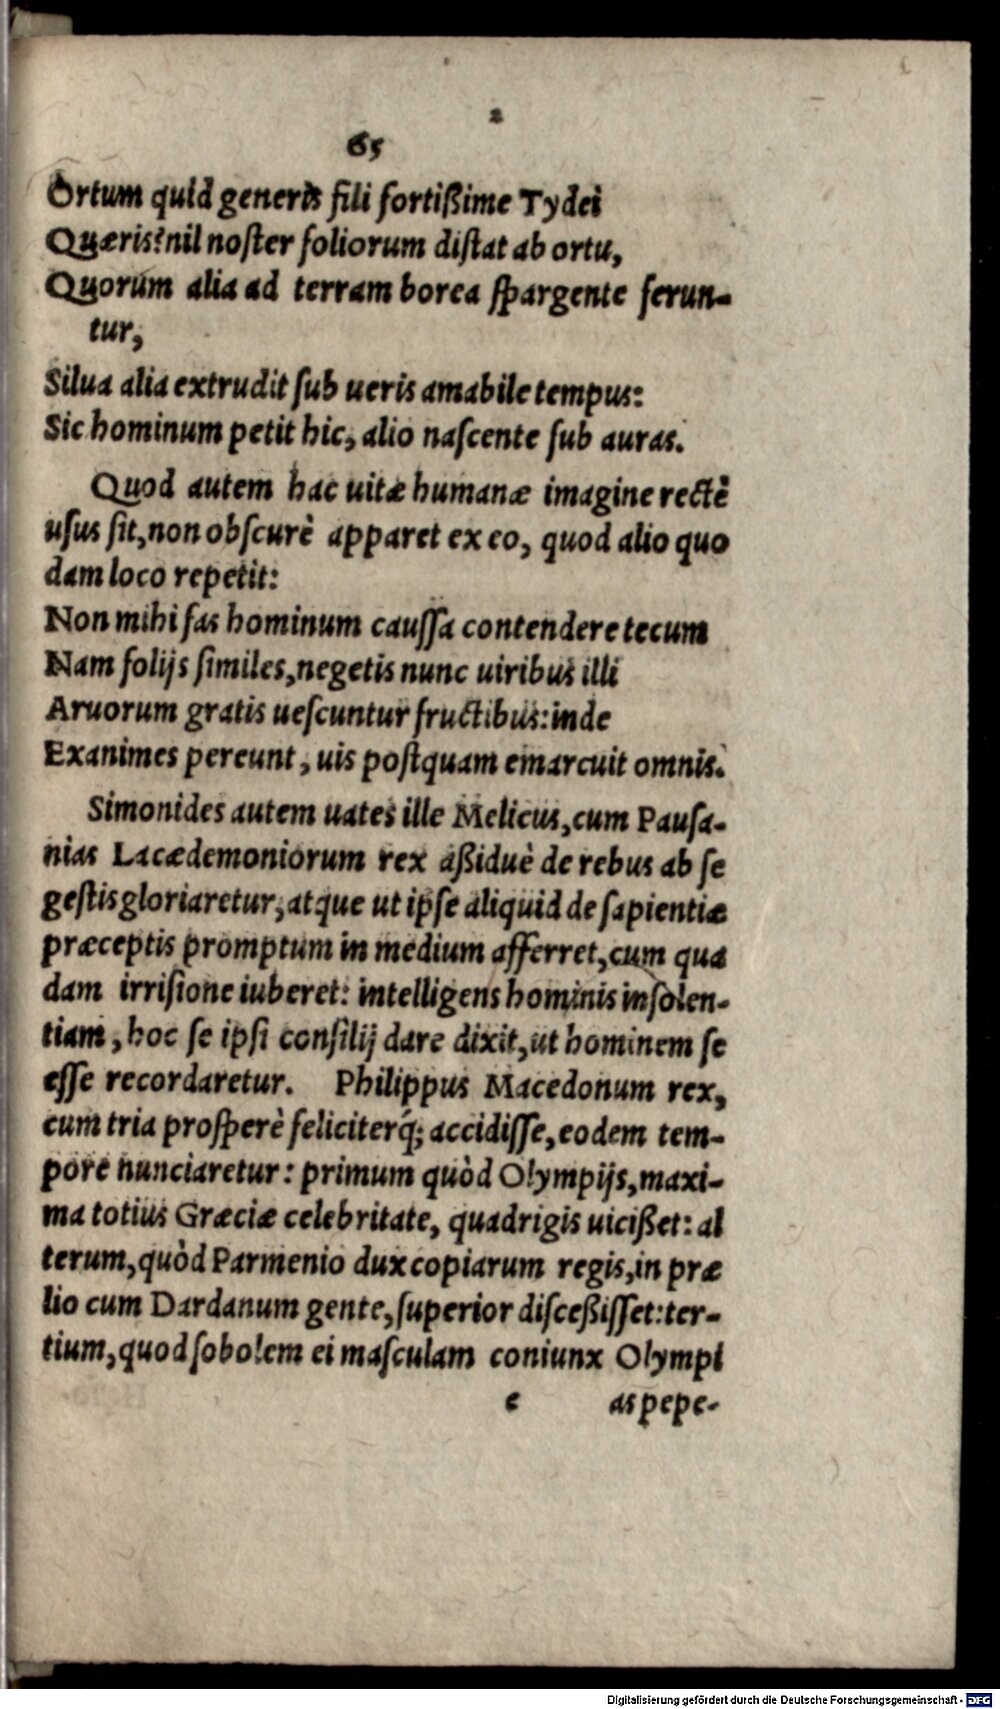 2
65
Ortum quid generis fili fortißime Tydei
Quæris? nil noſter foliorum diſtat ab ortu,
Quorum alia ad terram borea ſpargente ferun-
tur,
Silua alia extrudit ſub ueris amabile tempus:
Sic hominum petit hic, alio naſcente ſub auras.
Quod autem hac uitæ humanæ imagine rectè
uſus ſit, non obſcurè apparet ex eo, quod alio quo
dam loco repetit:
Non mihi fas hominum cauſſa contendere tecum
Nam folijs ſimiles, negetis nunc uiribus illi
Aruorum gratis ueſcuntur fructibus: inde
Exanimes pereunt, uis poſtquam emarcuit omnis.
Simonides autem uates ille Melicus, cum Pauſa-
nias Lacædemoniorum rex aßiduè de rebus ab ſe
geſtis gloriaretur, atque ut ipſe aliquid de ſapientiæ
præceptis promptum in medium afferret, cum qua
dam irriſione iuberet: intelligens hominis inſolen-
tiam, hoc ſe ipſi conſilij dare dixit, ut hominem ſe
eſſe recordaretur. Philippus Macedonum rex,
cum tria proſperè feliciterq́; accidiſſe, eodem tem-
pore nunciaretur: primum quòd Olympijs, maxi-
ma totius Græciæ celebritate, quadrigis uicißet: al
terum, quòd Parmenio dux copiarum regis, in præ
lio cum Dardanum gente, ſuperior diſceßiſſet: ter-
tium, quod ſobolem ei maſculam coniunx Olympi
e as pepe-
Digitalisierung gefördert durch die Deutsche Forschungsgemeinschaft - DFG